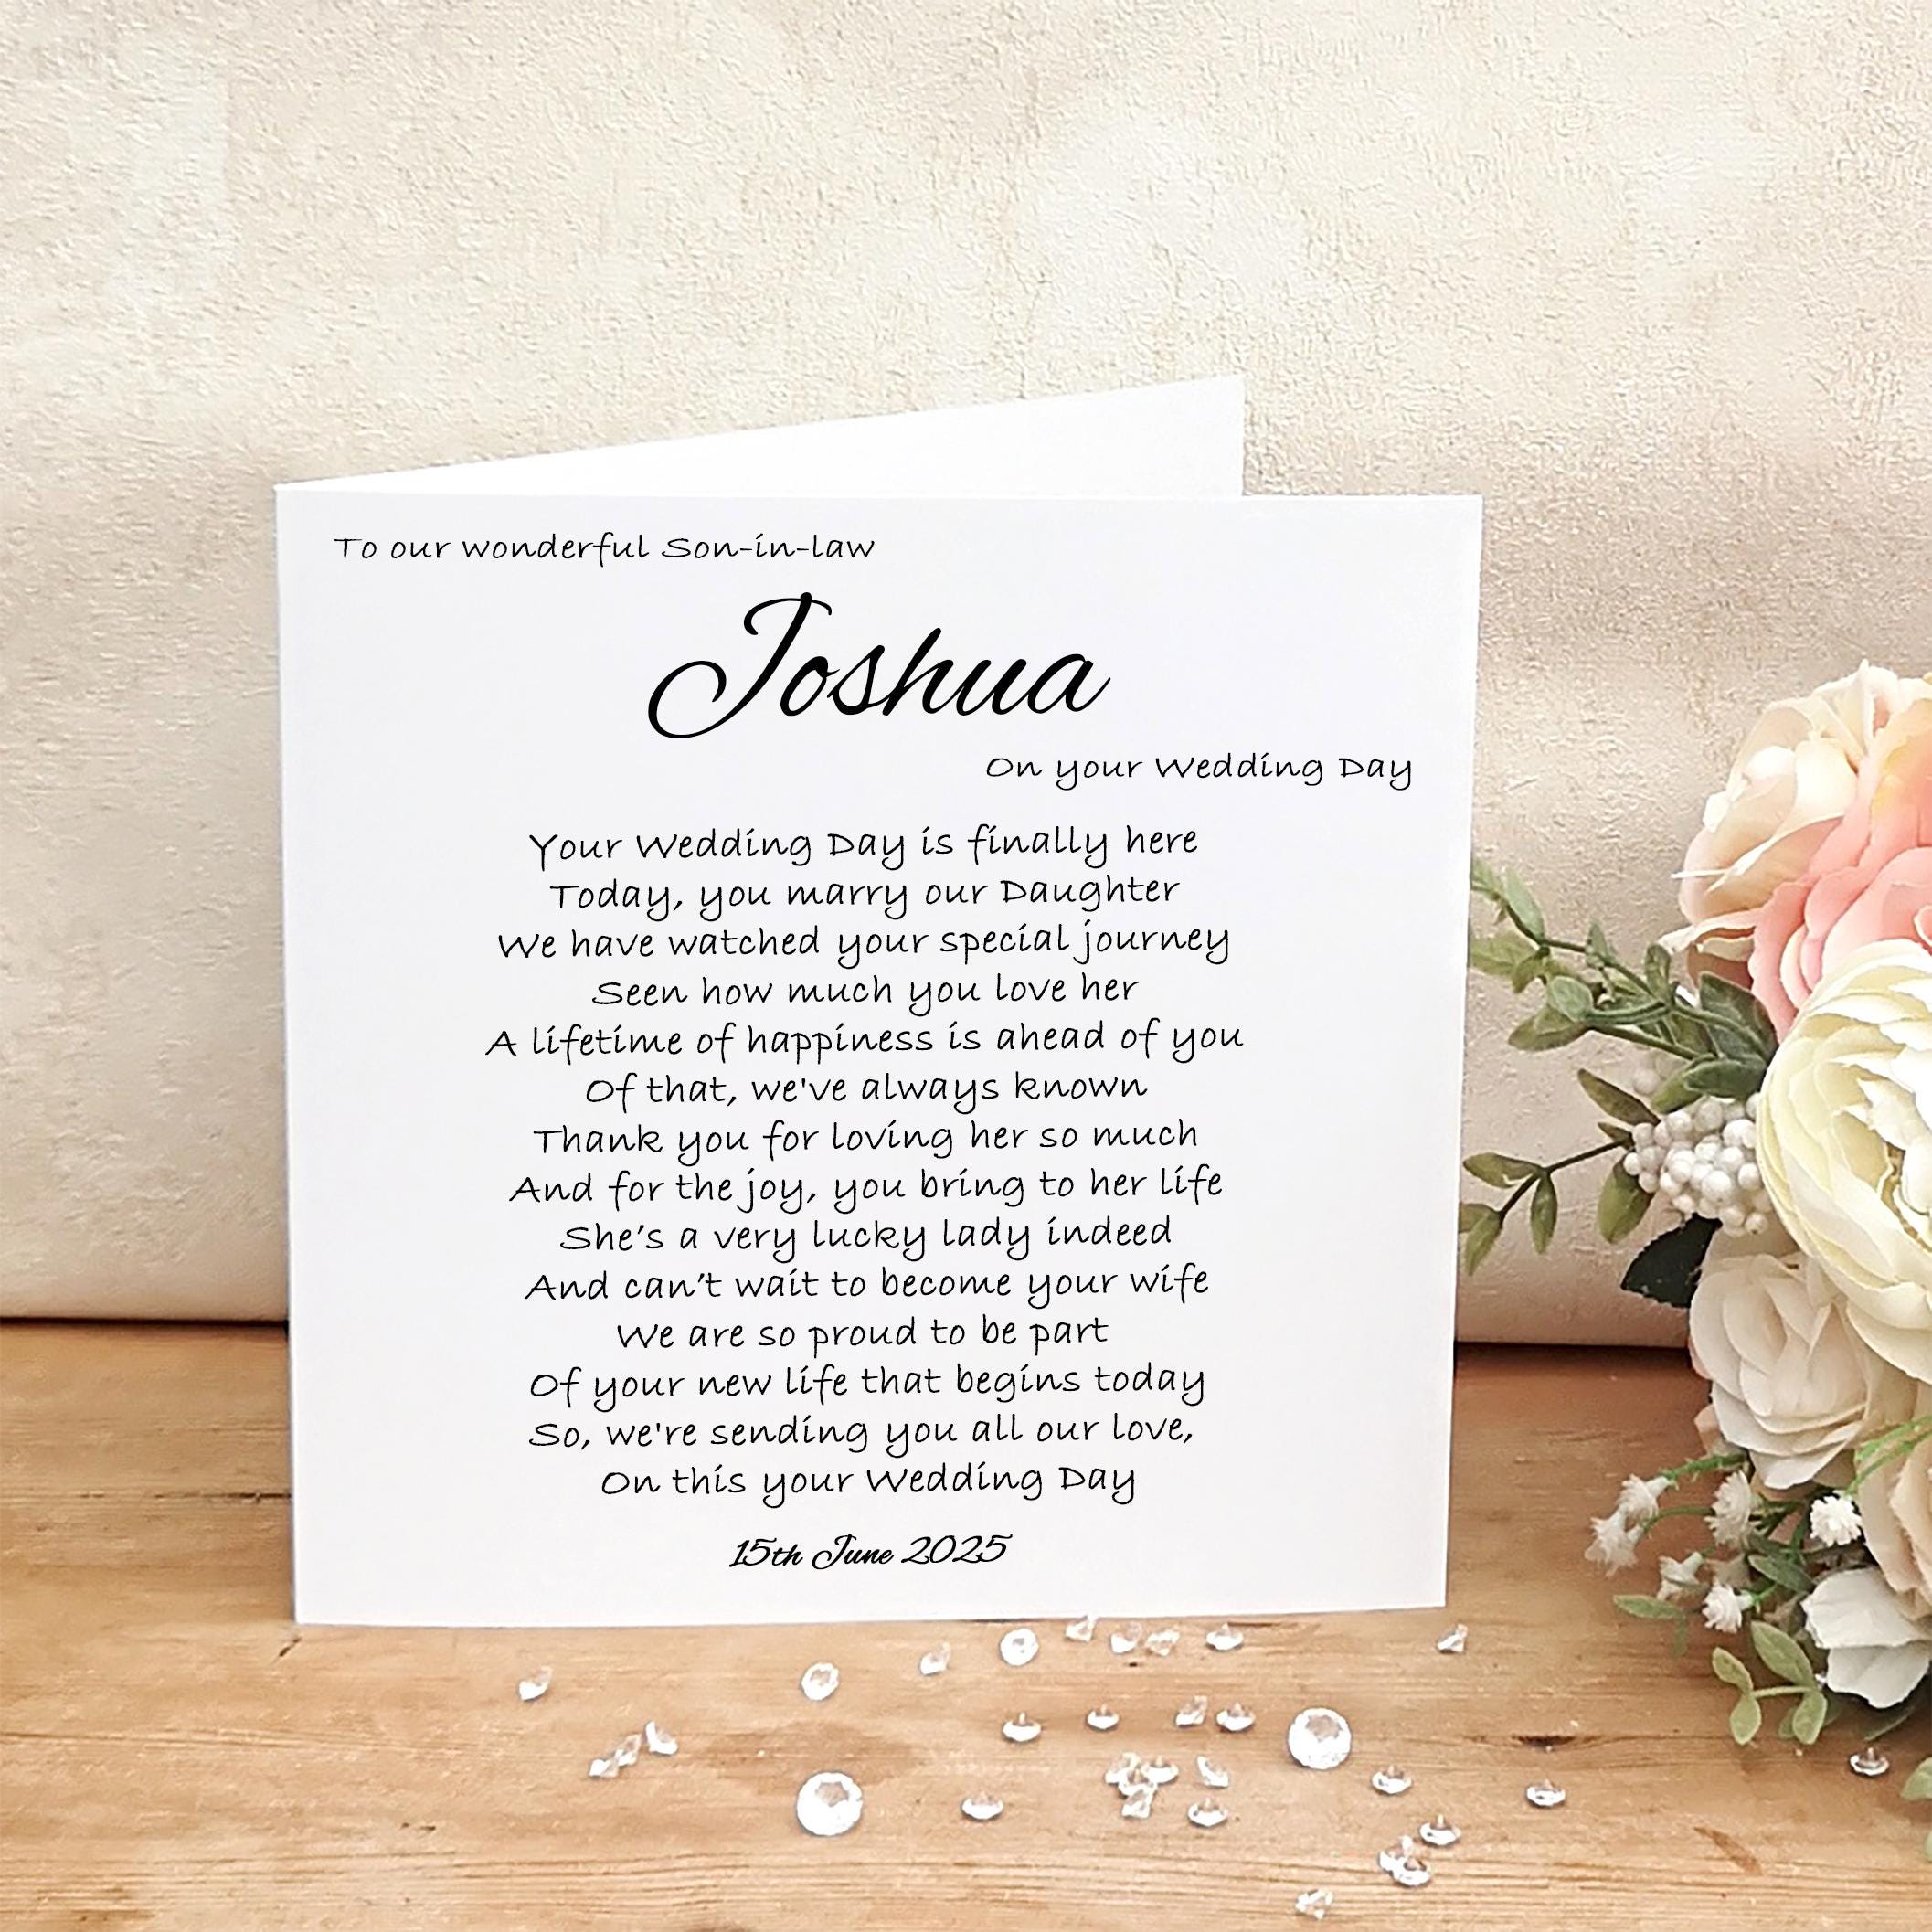 To our wonderful Son-in-law
Joshua
On your Wedding Day
Your Wedding Day is finally here
Today, you marry our Daughter
We have watched your special journey
Seen how much you love her
A lifetime of happiness is ahead of you
Of that, we've always known
Thank you for loving her so much
And for the joy, you bring to her life
She’s a very lucky lady indeed
And can’t wait to become your wife
We are so proud to be part
Of your new life that begins today
So, we're sending you all our love,
On this your Wedding Day
15th June 2025